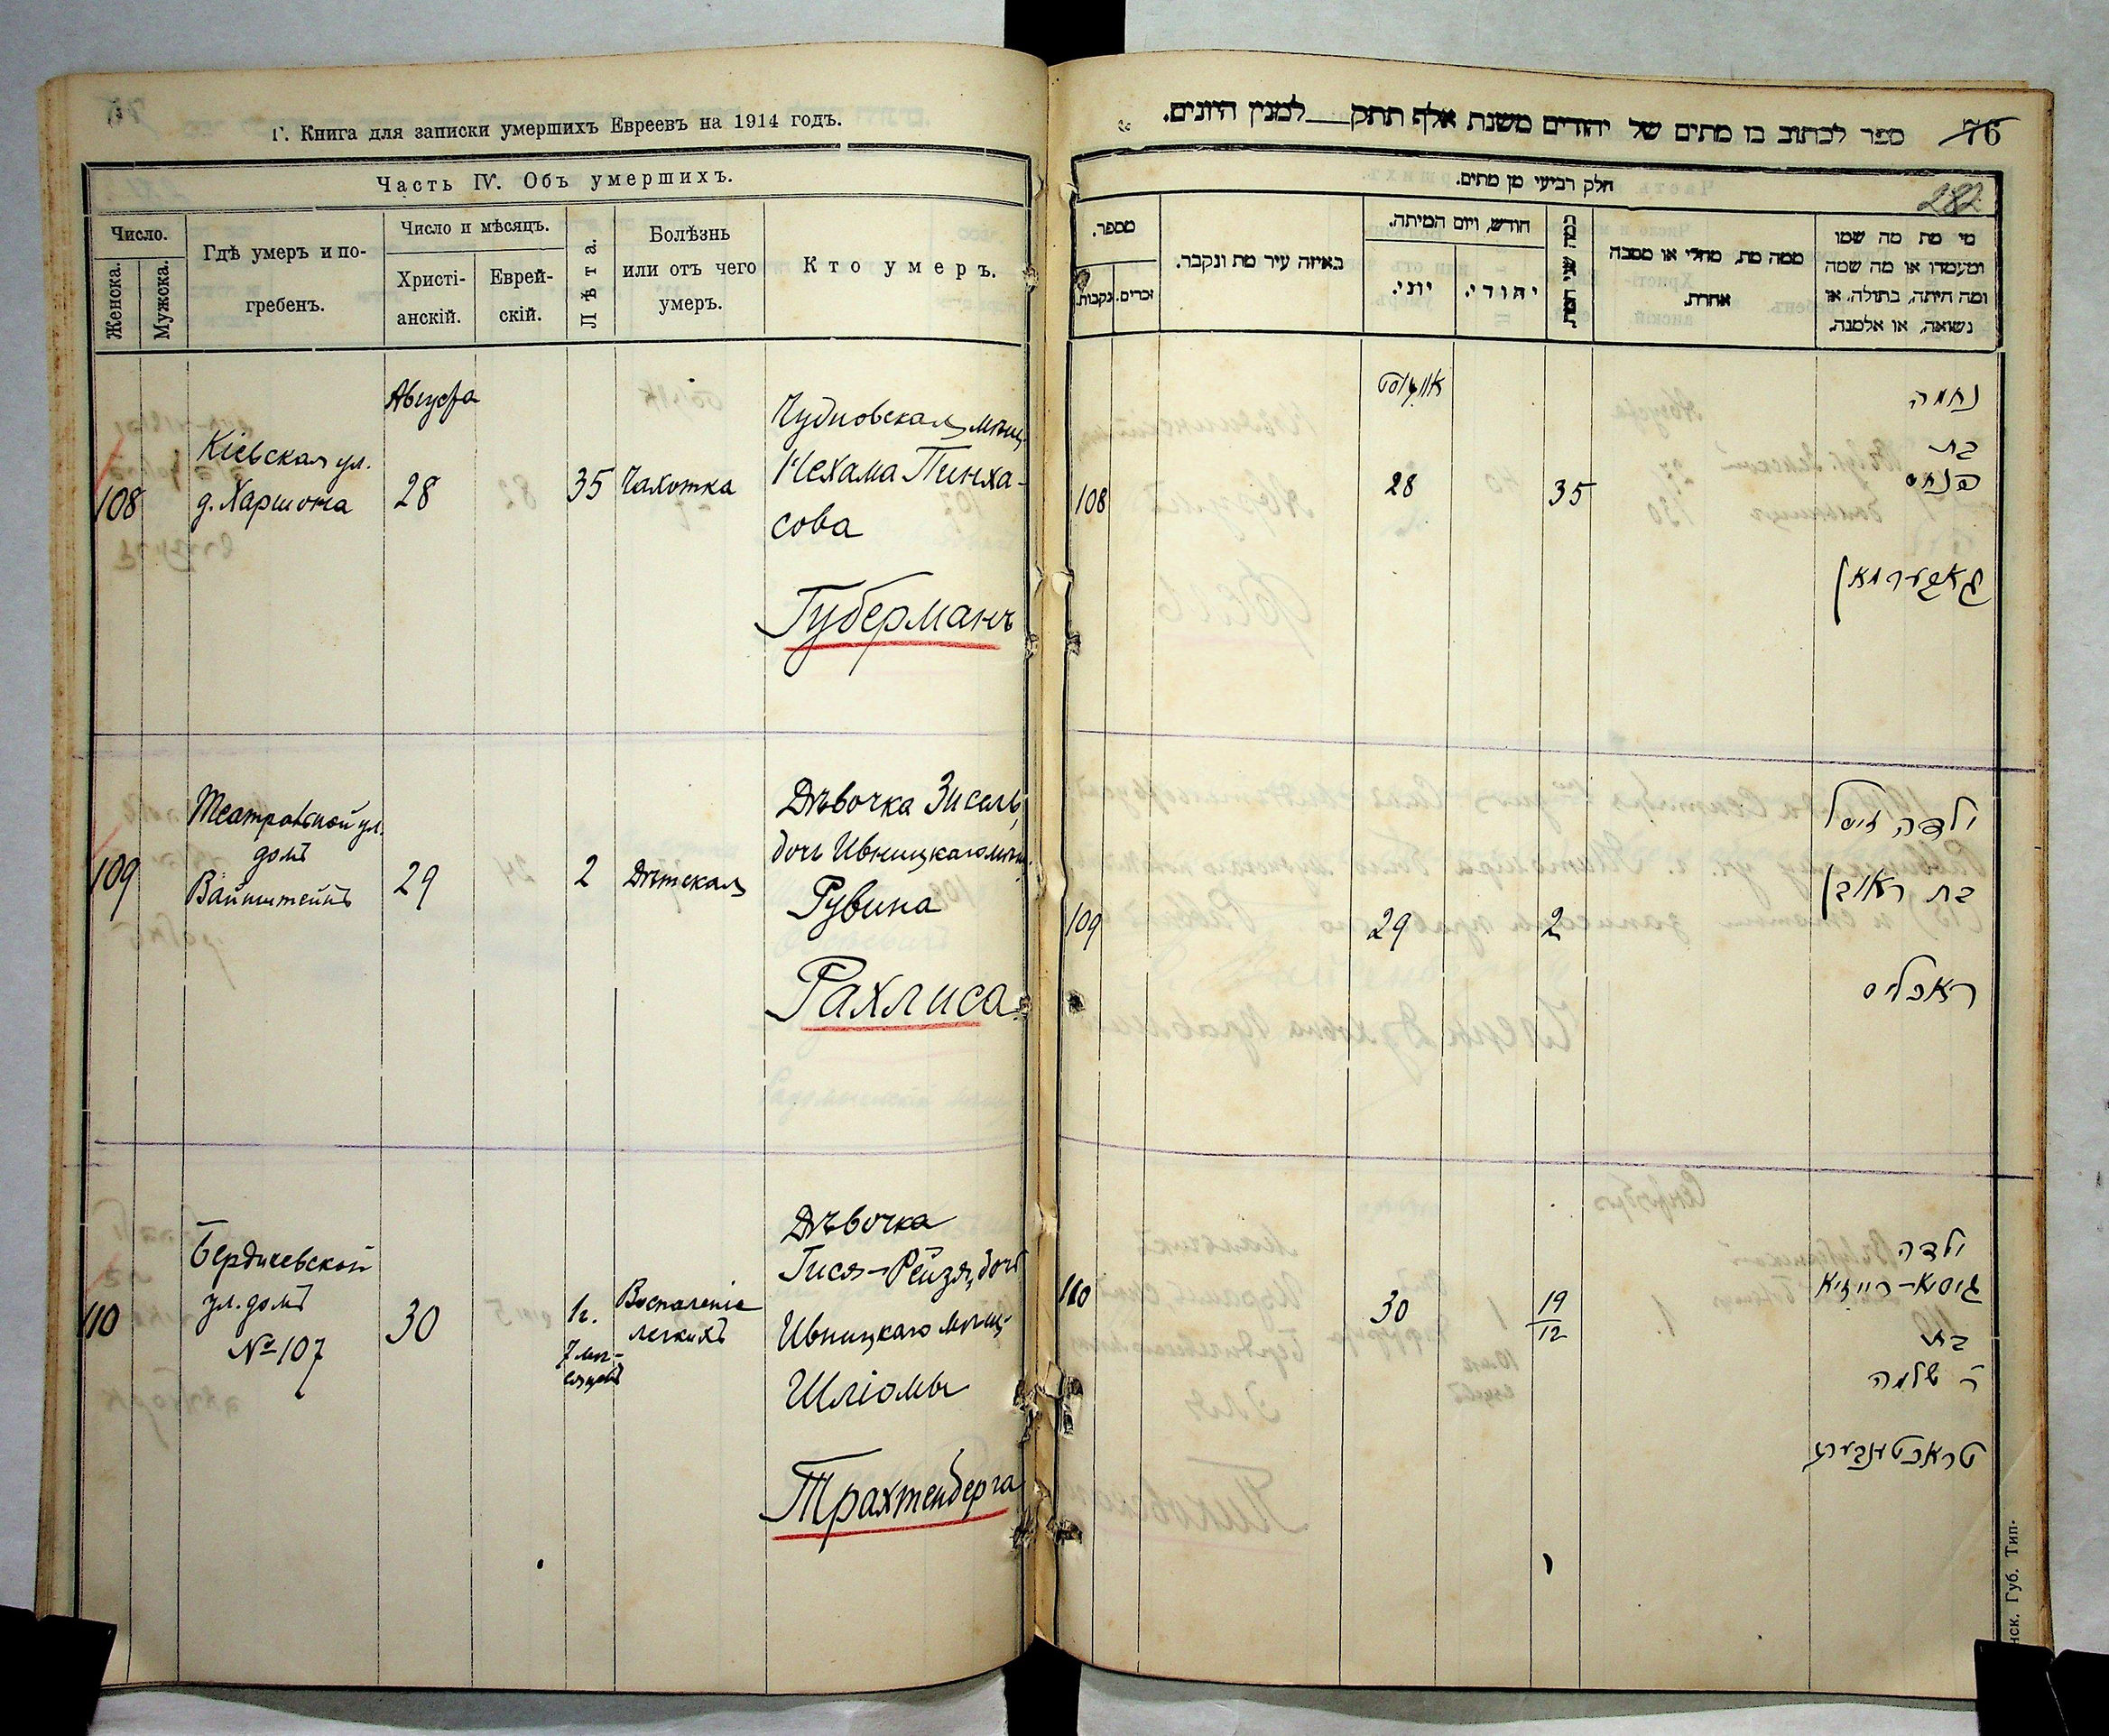 Г. Книга для записки умершихъ Евреевъ на 1914 годъ.
Часть IV. Объ умершихъ.
Число.
Женска.
Мужска.
Гдѣ умеръ и по-
гребенъ.
Число и мѣсяцъ.
Христі-
анскій.
Еврей-
скій.
Лѣта.
Болѣзнь
или отъ чего
умеръ.
Кто умеръ.
108
Кіевская ул.
д. Харшона
Августа
28
35
Чахотка
Чудновская мѣщ.
Нехама Пинха-
сова
Губерманъ
109
Театральной ул.
домъ
Вайнштейнъ
29
2
Дѣтская
Дѣвочка Зисель,
дочь Ивницкаго мѣщ.
Рувина
Рахлиса
110
Бердичевской
ул. домъ
№ 107
30
1 г.
7 мѣ-
сяцевъ
Воспаленіе
легкихъ
Дѣвочка
Гися-Рейзя, дочь
Ивницкаго мѣщ.
Шліомы
Трахтенберга
ספר לכתוב בו מתים של יהודים משנת אלף תתק לממנין היונים.
76
282
חלק רביעי מן מתים.
מספר.
נקבות.
זכרים.
באיזה עיר מת ונקבר.
חודש, ויום המיתה.
יוני.
יהודי.
כמה שני המת.
ממה מת, מחלי או מסבה
אחרת.
מי מת מה שמו
ומעמדו או מה שמה
ומה היתה, בתולה, או
נשואה, או אלמנה.
108
אווגוסט
28
35
נחמה
בת
פנחס
גאבערמאן
109
29
2
ילדה זיסל
בת ראובן
ראכליס
110
30
19
12
ילדה
גיסיא-רייזיא
בת
ר' שלמה
טראכטענבערג
нск. Губ. Тип.